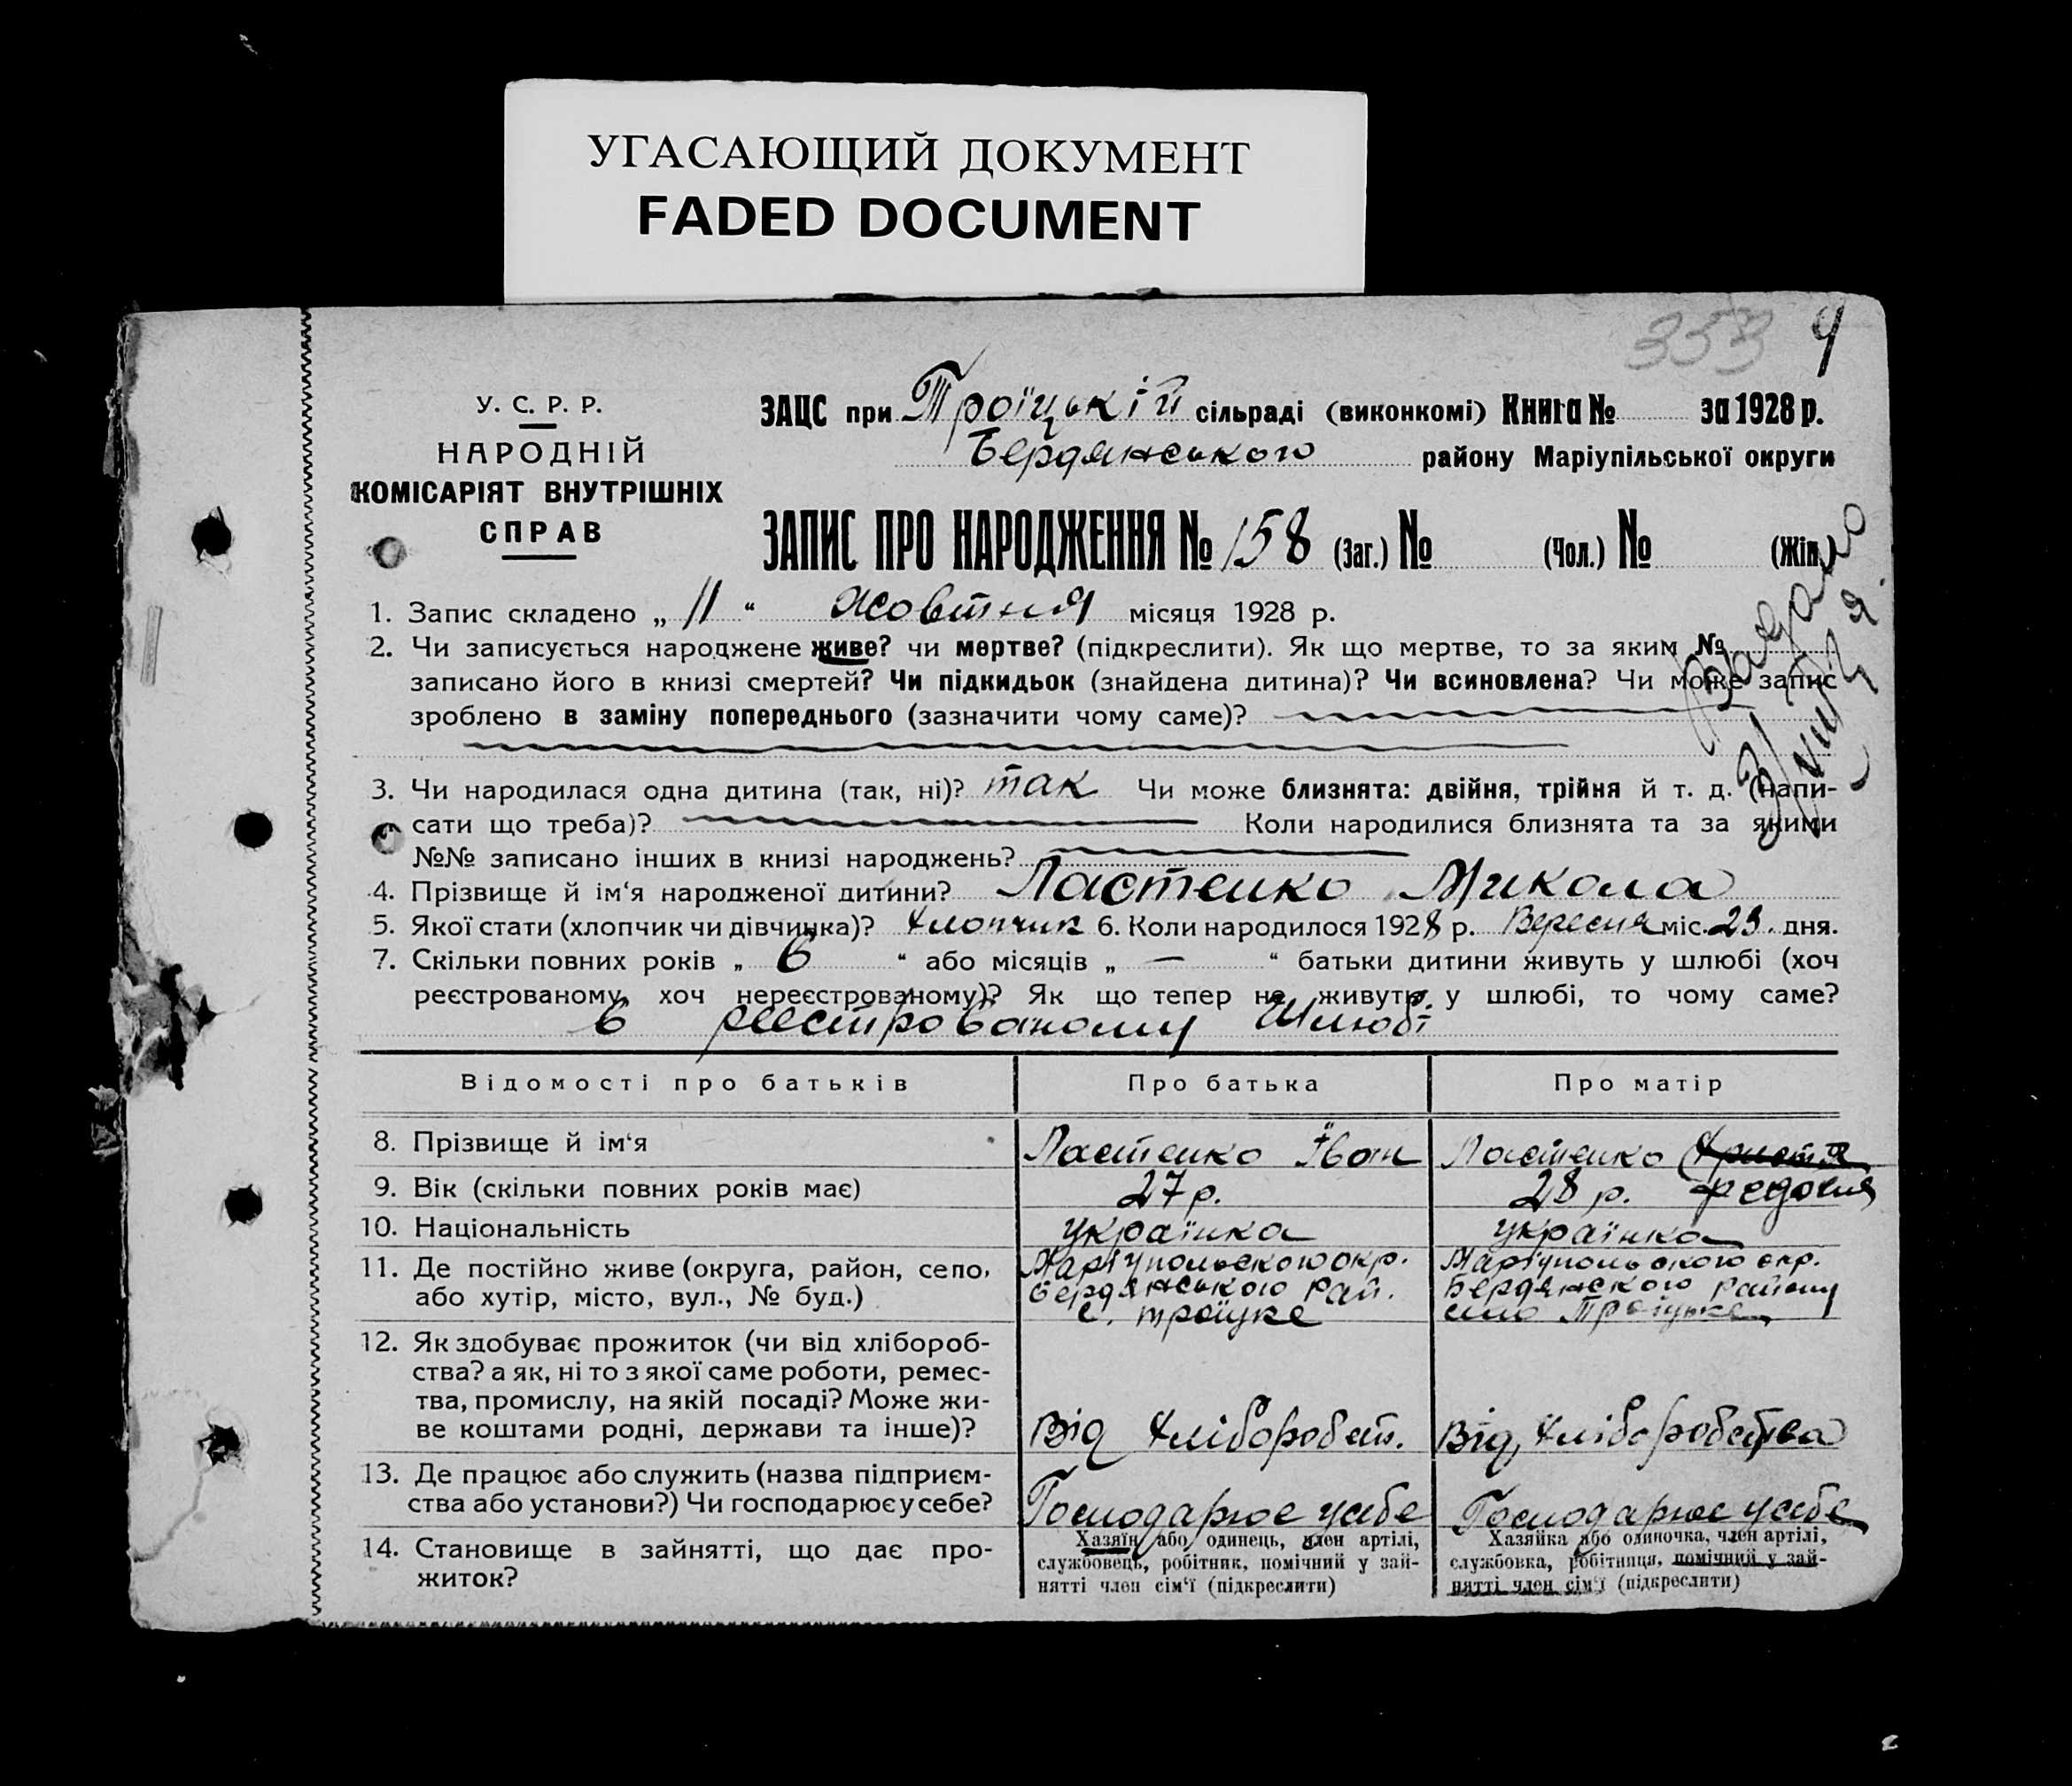 УГАСАЮЩИЙ ДОКУМЕНТ
FADED DOCUMENT
353 9
У. С. Р. Р.
НАРОДНІЙ
КОМІСАРІЯТ ВНУТРІШНІХ
СПРАВ
ЗАЦС при Троїцькій сільраді (виконкомі) Книга № за 1928 р.
Бердянського району Маріупільської округи
ЗАПИС ПРО НАРОДЖЕННЯ № 158 (Заг.) № (Чол.) № (Жін.
1. Запис складено „ 11 “ жовтня місяця 1928 р.
2. Чи записується народжене живе? чи мертве? (підкреслити). Як що мертве, то за яким №
записано його в книзі смертей? Чи підкидьок (знайдена дитина)? Чи всиновлена? Чи може запис
зроблено в заміну попереднього (зазначити чому саме)?
3. Чи народилася одна дитина (так, ні)? так Чи може близнята: двійня, трійня й т. д. (напи-
сати що треба)? Коли народилися близнята та за якими
№№ записано інших в книзі народжень?
4. Прізвище й ім‘я народженої дитини? Ластенко Микола
5. Якої стати (хлопчик чи дівчинка)? Хлопчик 6. Коли народилося 1928 р. Вересня міс. 23. дня.
7. Скільки повних років „ 6 “ або місяців „ — “ батьки дитини живуть у шлюбі (хоч
реєстрованому, хоч нереєстрованому)? Як що тепер не живуть у шлюбі, то чому саме?
в реєстрованому шлюбі
Відомості про батьків Про батька Про матір
8. Прізвище й ім‘я Ластенко Іван Ластенко Христя
9. Вік (скільки повних років має) 27 р. 28 р. Федосия
10. Національність українка українка
11. Де постійно живе (округа, район, село, Маріупольского окр. Маріупольского окр.
або хутір, місто, вул., № буд.) Бердянського рай. Бердянского району
с. троїцке село Троїцьке
12. Як здобуває прожиток (чи від хлібороб-
ства? а як, ні то з якої саме роботи, ремес-
тва, промислу, на якій посаді? Може жи-
ве коштами родні, держави та інше)? Від хліборобст. Від хліборобства
13. Де працює або служить (назва підприєм-
ства або установи?) Чи господарює у себе? Господарює усебе Господарює усебе
14. Становище в зайнятті, що дає про-
житок?
Хазяїн або одинець, член артілі,
службовець, робітник, помічний у зай-
нятті член сім‘ї (підкреслити)
Хазяйка або одиночка, член артілі,
службовка, робітниця, помічний у зай-
нятті член сім‘ї (підкреслити)